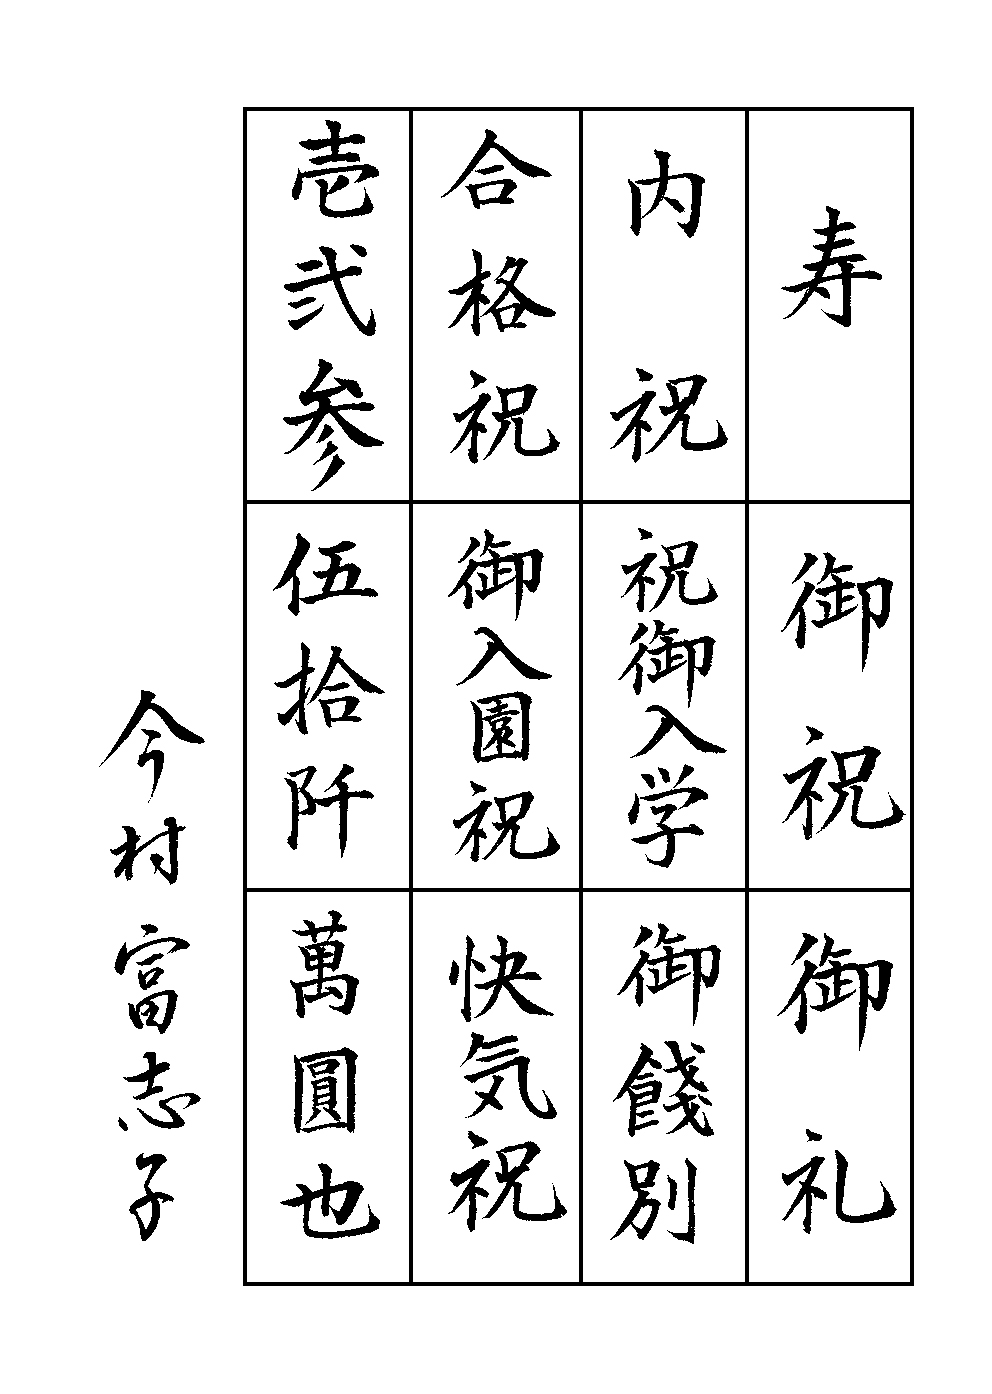 寿
御祝
御礼
内祝
祝御入学
御餞別
合格祝
御入園祝
快気祝
壱弐参
伍拾阡
萬圓也
今村富志子